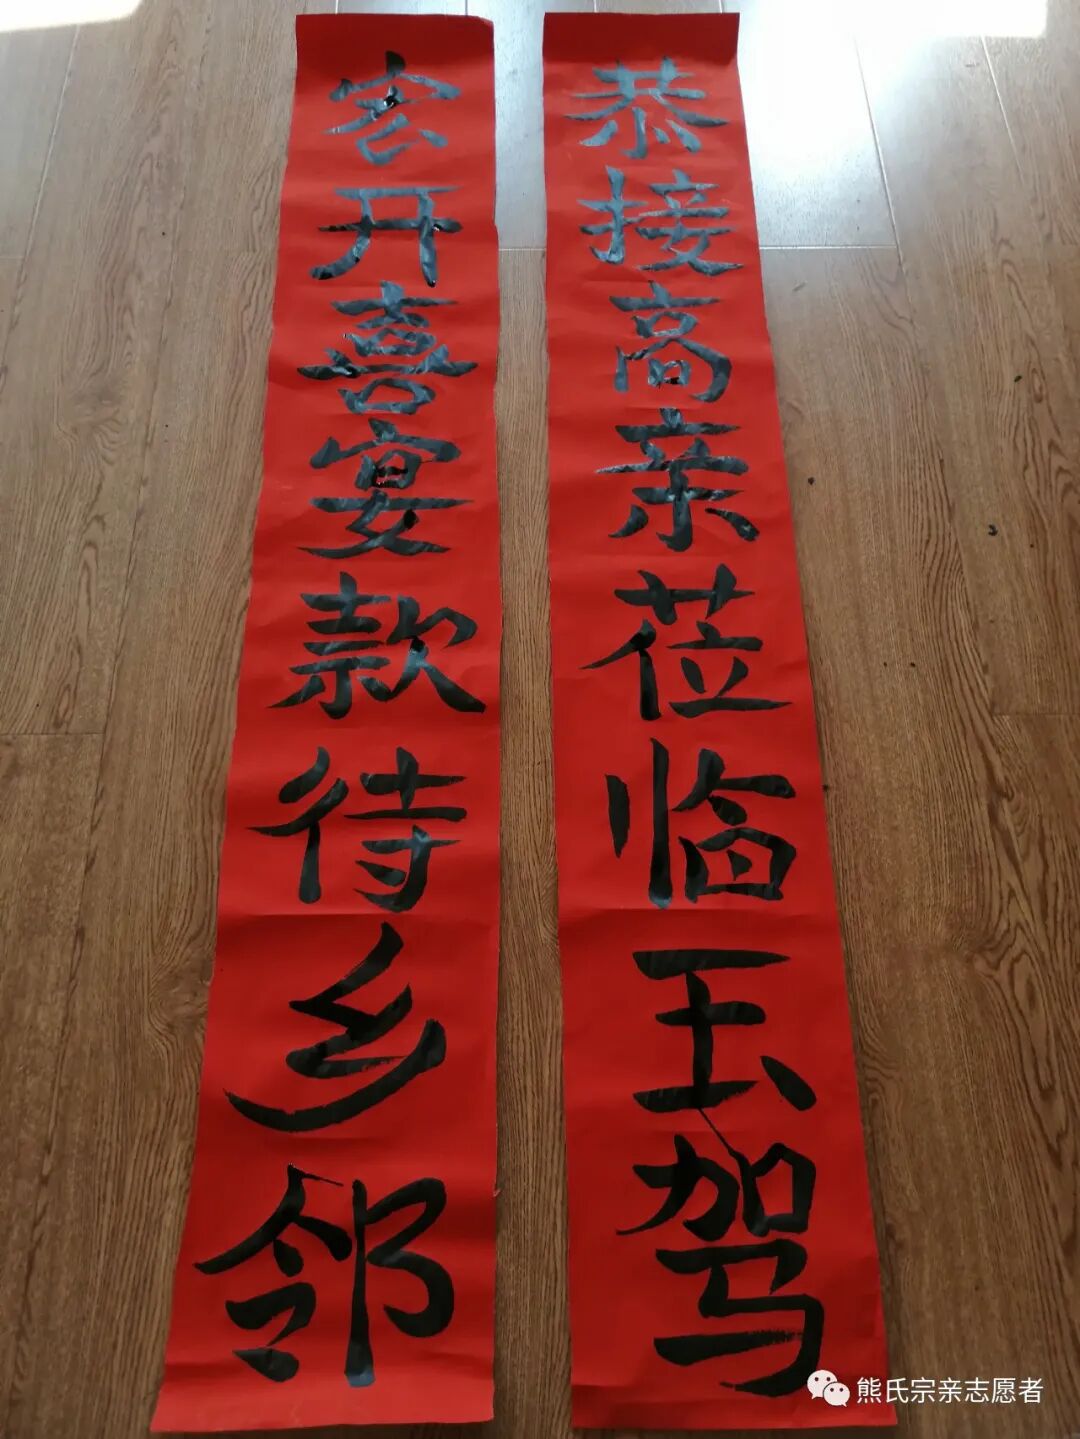 恭接高亲莅临玉驾
宏开喜宴款待乡邻
熊氏宗亲志愿者